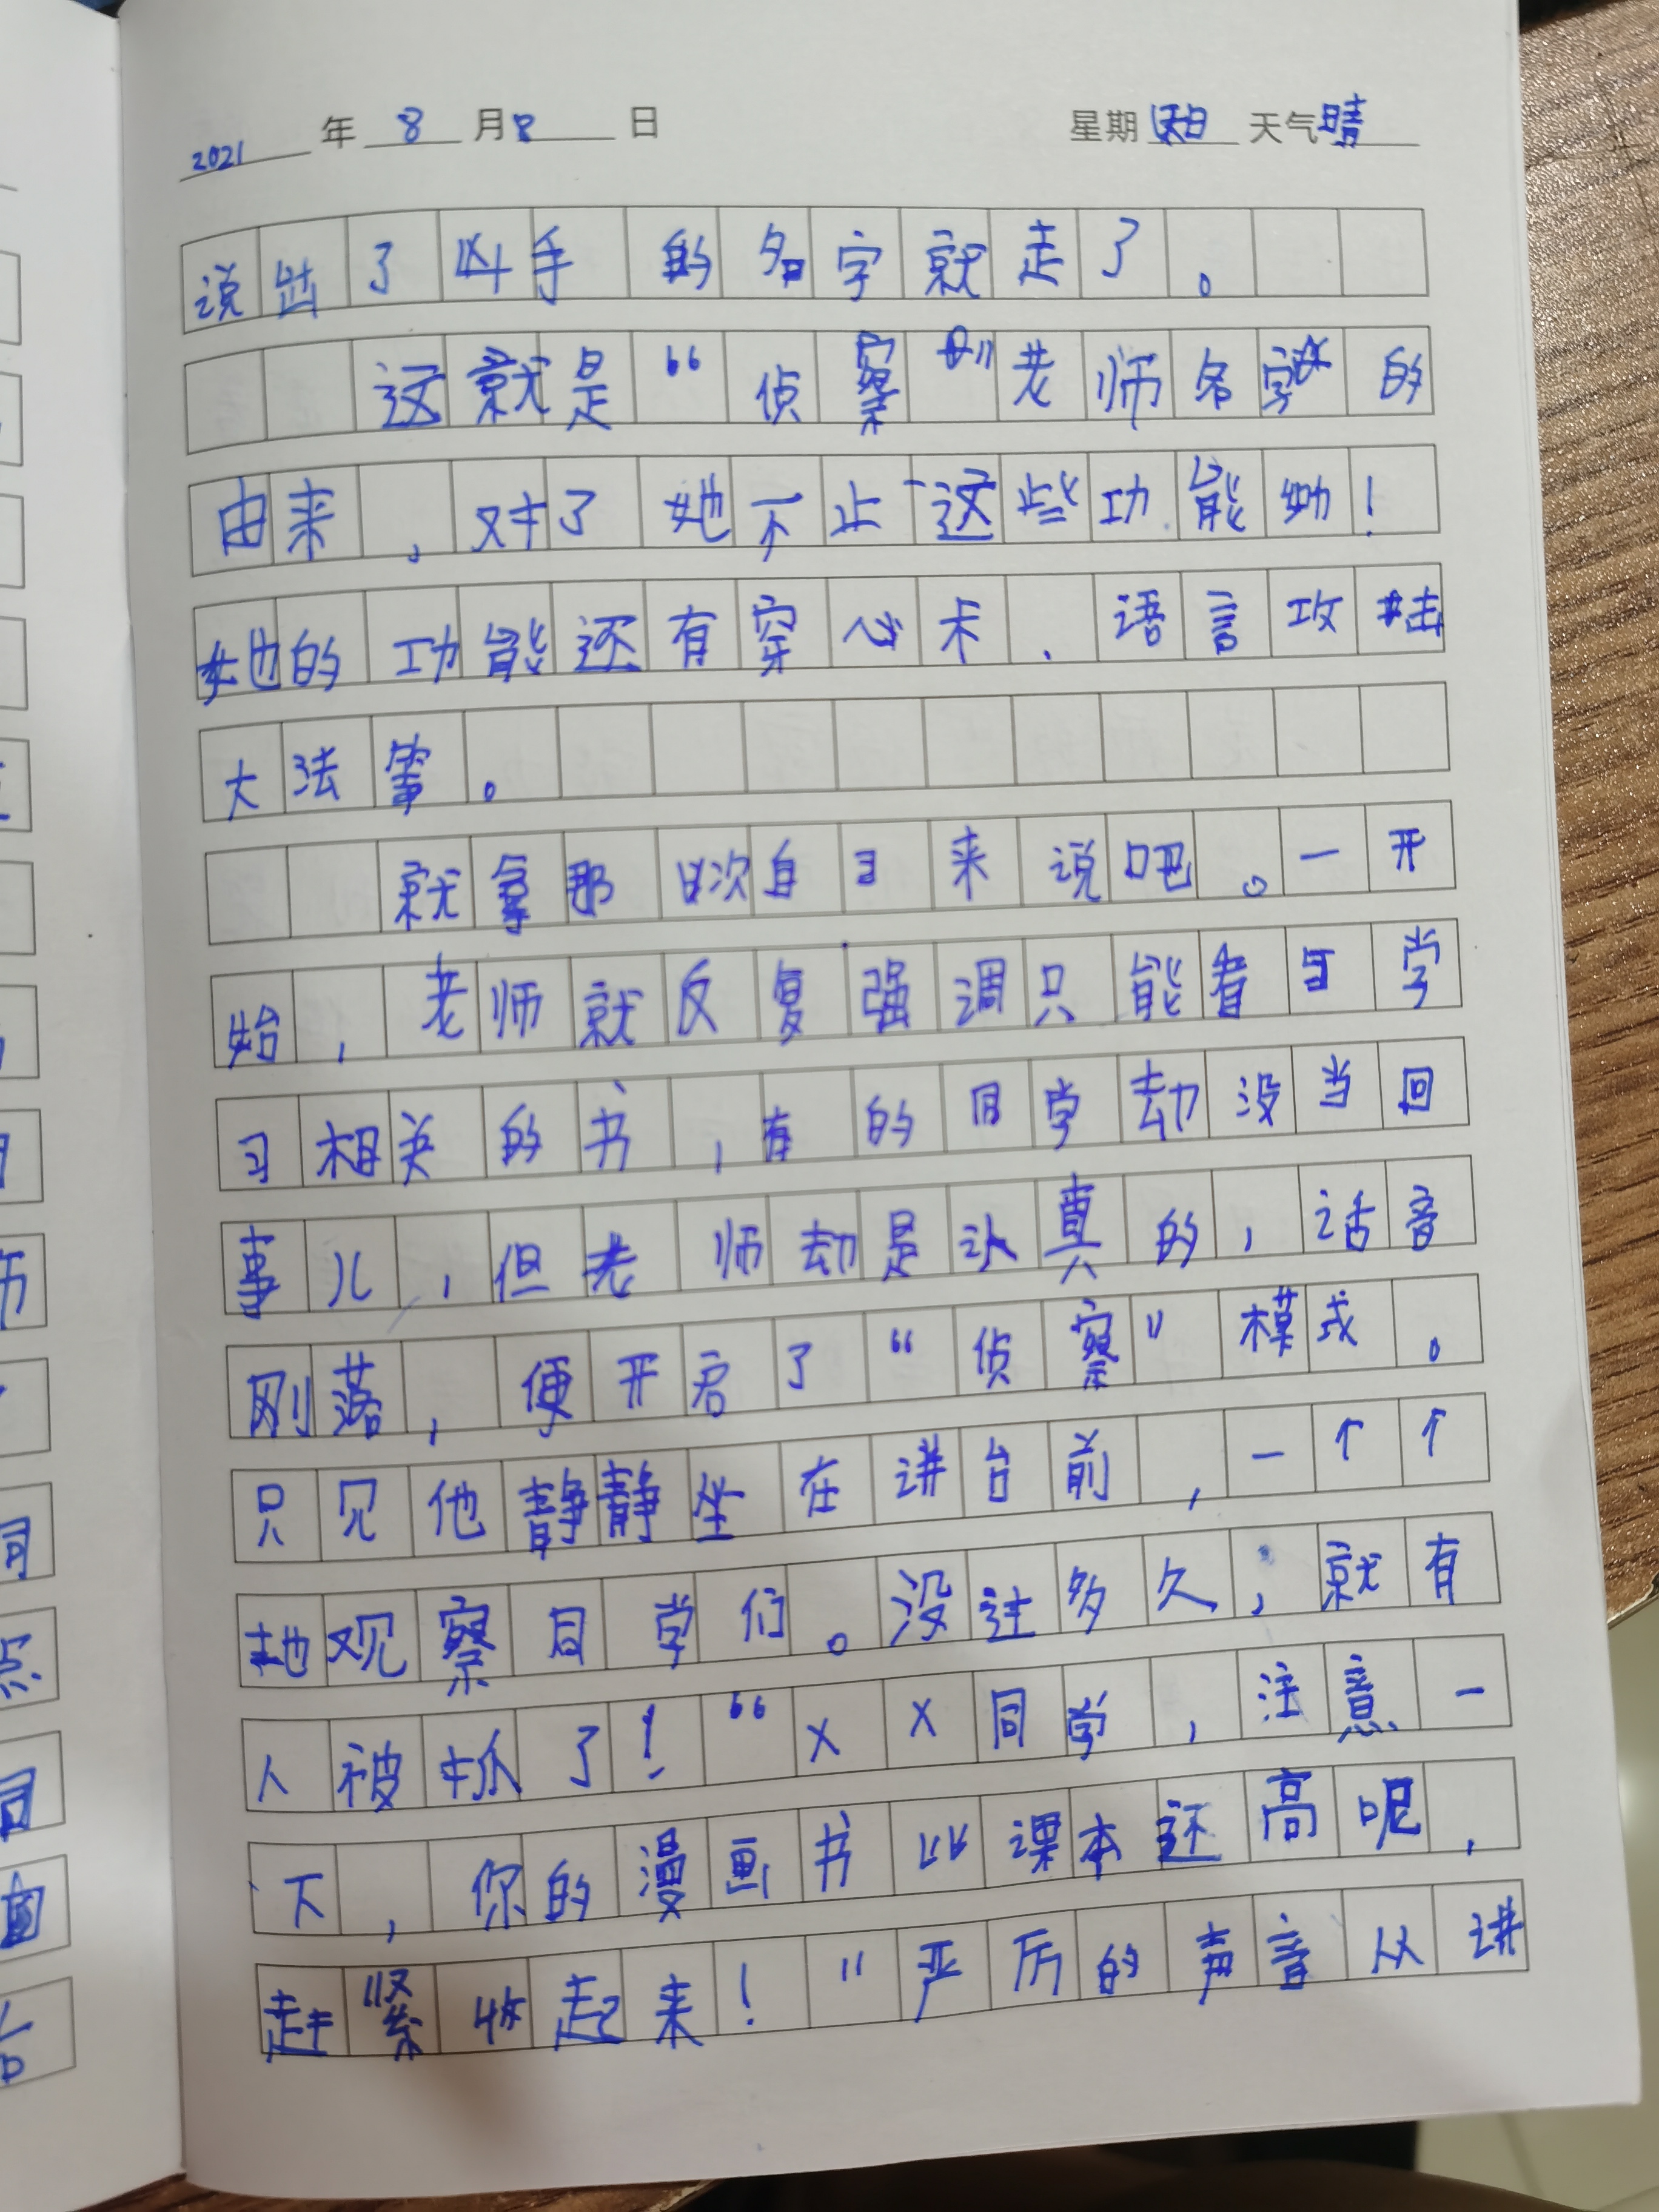 2021年8月8日 星期日 天气晴
说出了凶手的名字就走了。
这就是“侦察”老师名字的
由来,对了她不止这些功能呦!
她的功能还有穿心卡、语言攻击
大法等。
就拿那次自习来说吧。一开
始,老师就反复强调只能看与学
习相关的书,有的同学劫没当回
事儿,但老师劫是认真的,话音
刚落,便开启了“侦察”模式。
只见他静静坐在讲台前,一个个
地观察同学们。没过多久,就有
人被抓了!“XX同学,注意一
下,你的漫画书比课本还高呢,
赶紧收起来!”严厉的声音从讲